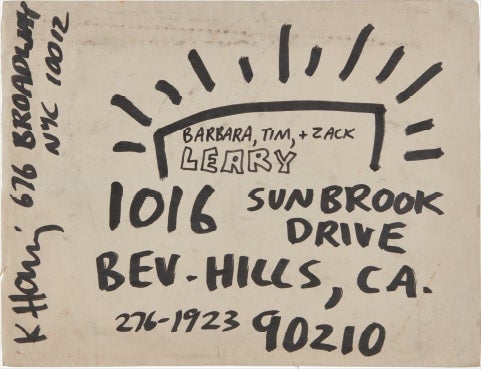 K Haring 676 BROADWAY
NYC 10012
BARBARA, TIM, + ZACK
LEARY
1016 SUNBROOK
DRIVE
BEV-HILLS, CA.
276-1923 90210